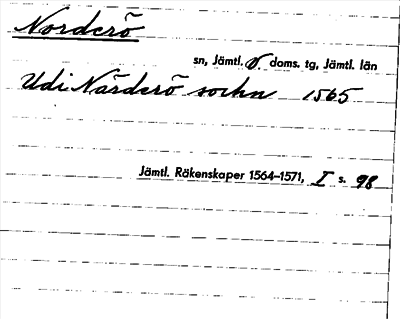 Norderö
sn, Jämtl. ö. doms. tg, Jämtl. län
Udi Närderö sochn 1565
Jämtl. Räkenskaper 1564–1571, I s. 98